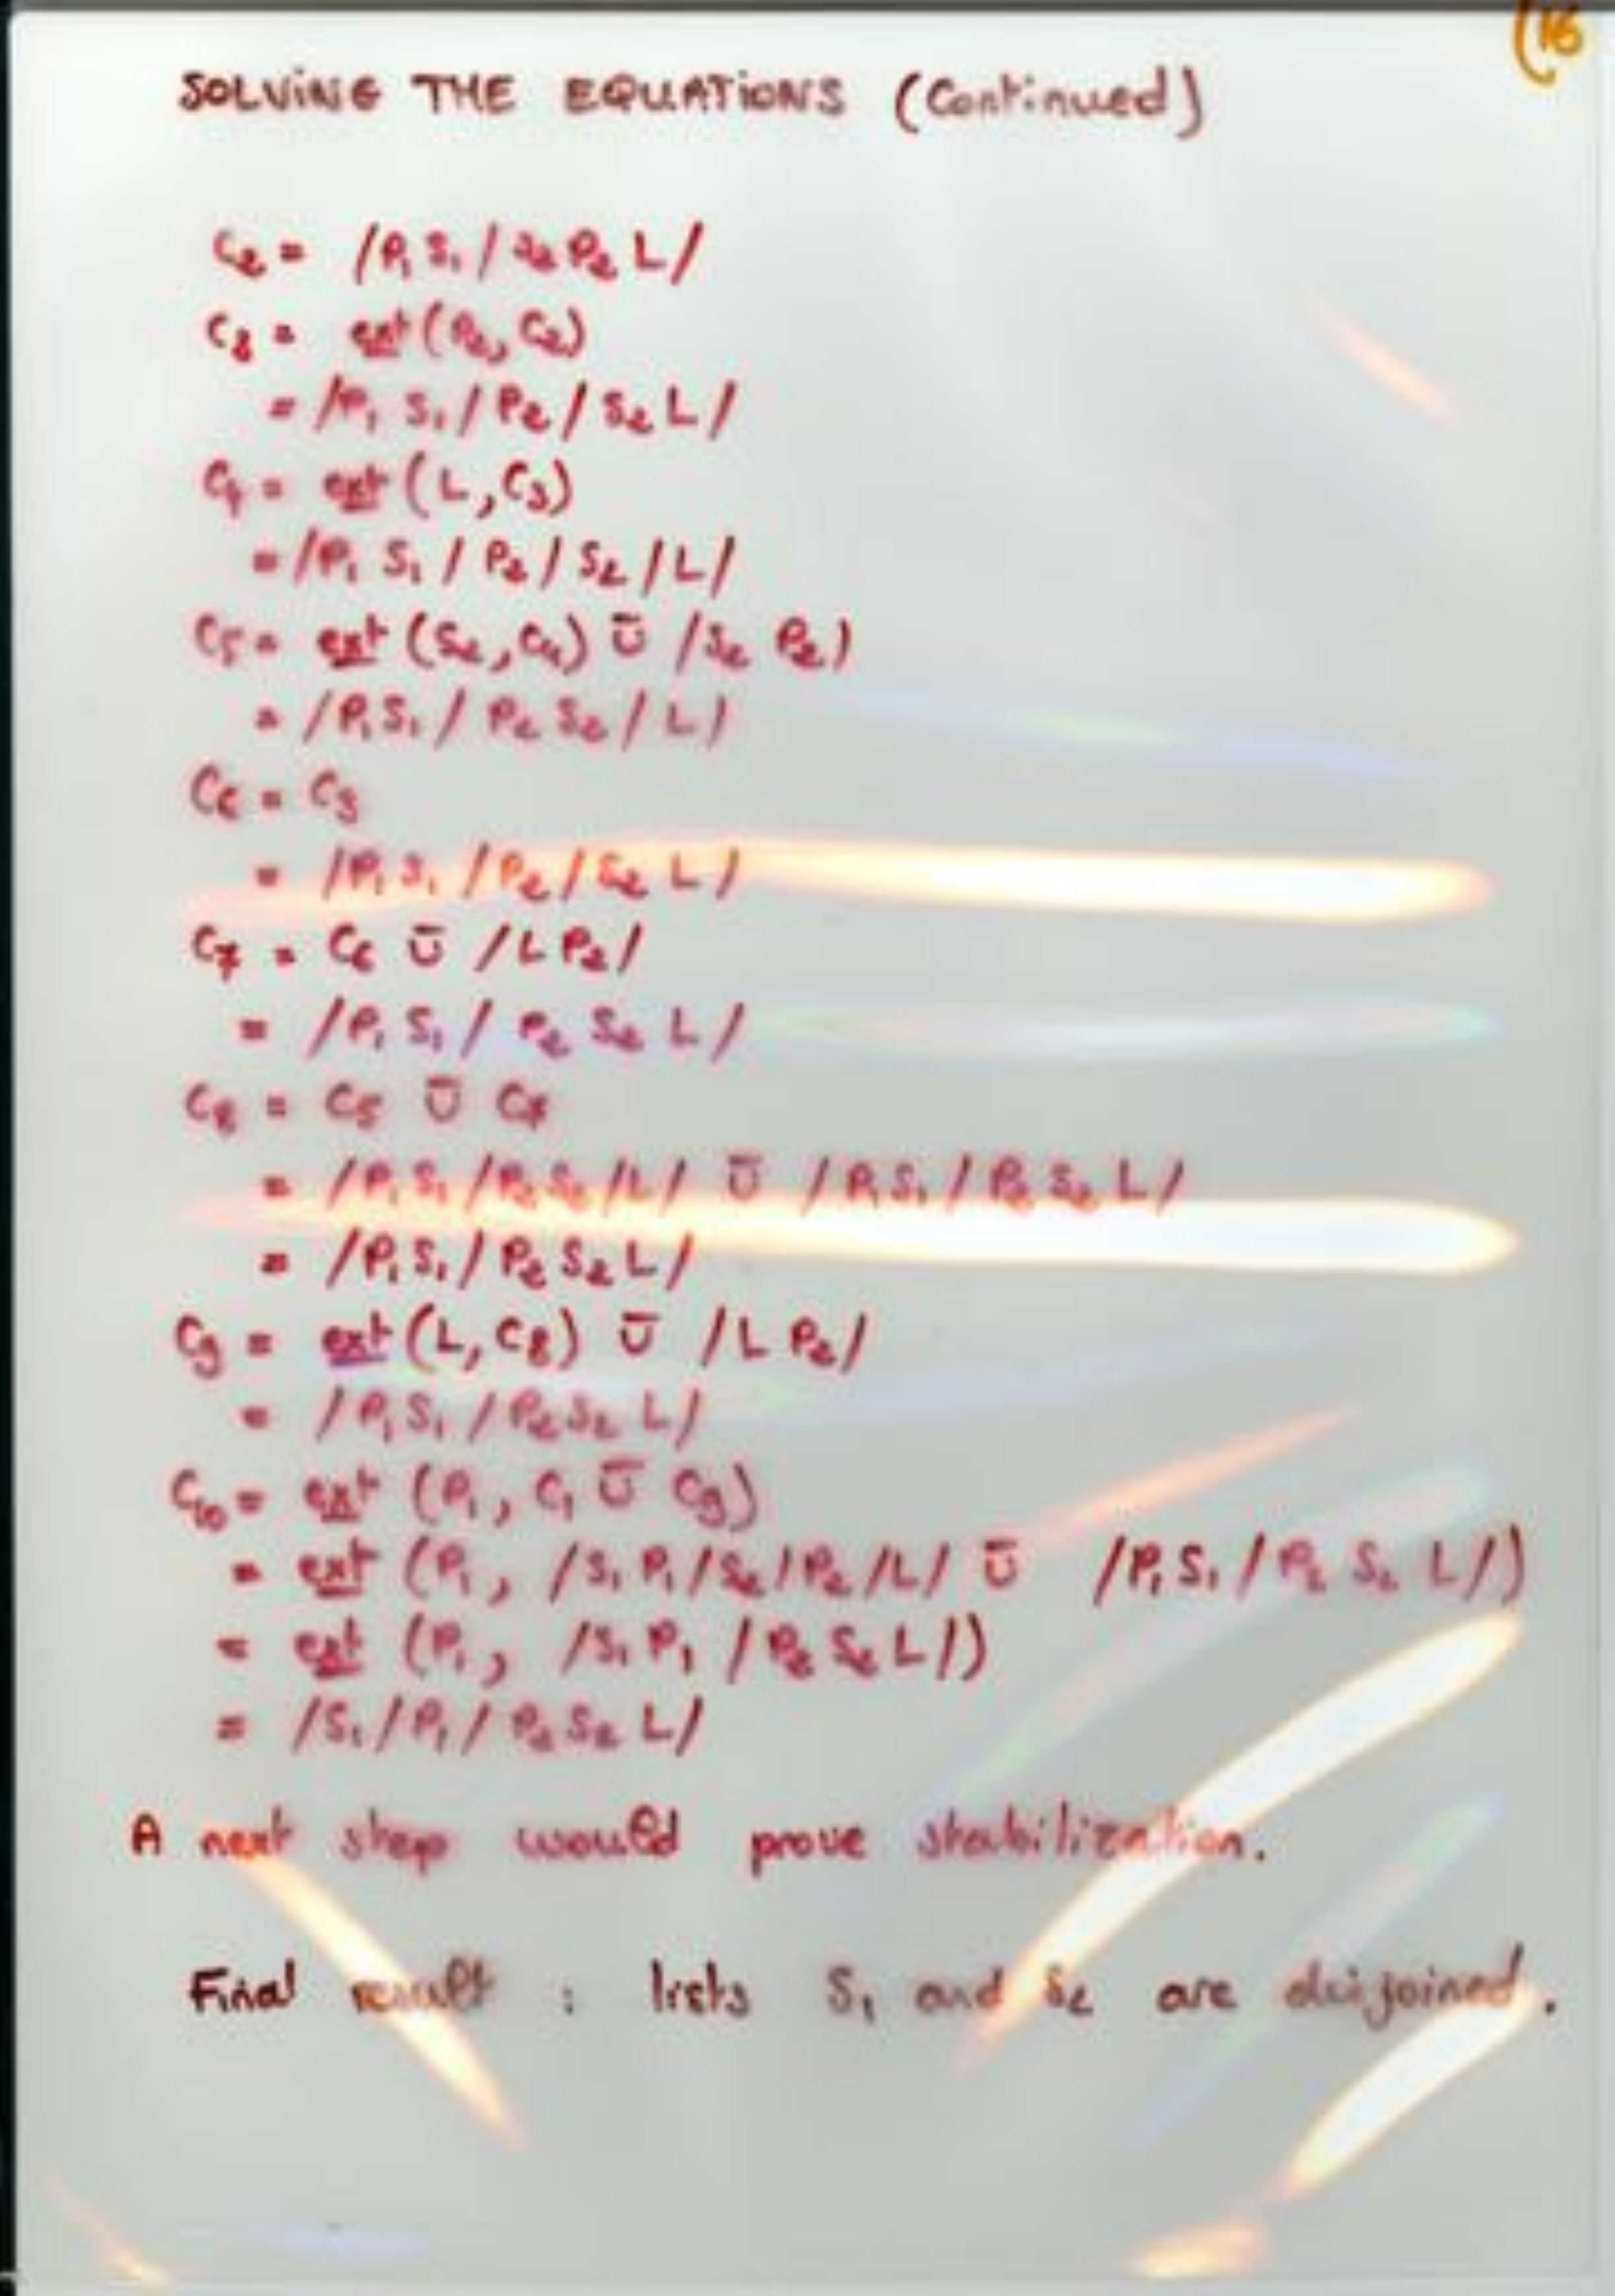 (16
SOLVING THE EQUATIONS (Continued)
C₂ = /P₁ S₁ / S₂ P₂ L/
C₃ = ext(P₂, C₂)
= /P₁ S₁ / P₂ / S₂ L /
C₄ = ext(L, C₃)
= /P₁ S₁ / P₂ / S₂ / L /
C₅ = ext(S₂, C₄) Ū /S₂ P₂)
= /P₁ S₁ / P₂ S₂ / L /
C₆ = C₃
= /P₁ S₁ / P₂ / S₂ L /
C₇ = C₆ Ū /L P₂/
= /P₁ S₁ / P₂ S₂ L /
C₈ = C₅ Ū C₇
= /P₁ S₁ / P₂ S₂ / L / Ū /P₁ S₁ / P₂ S₂ L /
= /P₁ S₁ / P₂ S₂ L /
C₉ = ext(L, C₈) Ū /L P₂/
= /P₁ S₁ / P₂ S₂ L /
C₁₀ = ext (P₁, C₁ Ū C₉)
= ext (P₁, /S₁ P₁ / S₂ / P₂ / L / Ū /P₁ S₁ / P₂ S₂ L /)
= ext (P₁, /S₁ P₁ / P₂ S₂ L /)
= /S₁ / P₁ / P₂ S₂ L /
A next step would prove stabilization.
Final result : lists S₁ and S₂ are disjoined.